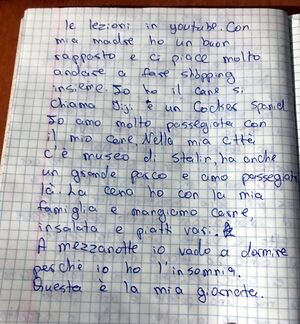 le lezioni in youtube. Con
mia madre ho un buon
rapporto e ci piace molto
andare a fare shopping
insieme. Io ho il cane si
chiama Gigi. è un Cocker Spaniel
Io amo molto passegiata con
il mio cane. Nella mia città
c'è museo di Stalin, ha anche
un grande parco e amo passegiata
là. La cena ho con la mia
famiglia e mangiamo carne,
insalata e piatti vari.
A mezzanotte io vado a dormire
perchè io ho l'insomnia.
Questa è la mia giornata.